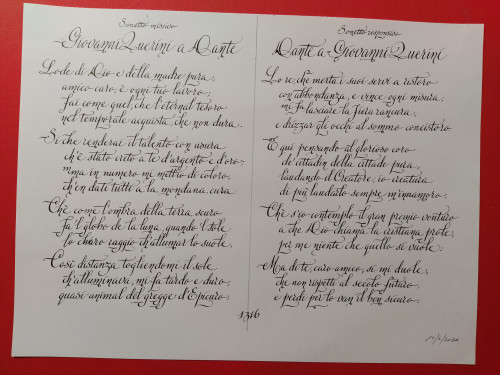 Sonetto missivo
Giovanni Querini a Dante
Lode di Dio e della madre pura,
amico caro, è ogni tuo lavoro;
fai come quel, che l'eternal tesoro
nel temporale acquista, che non dura.
Sì che renderai il talento con usura
ch'è stato creto a te d'argento e d'oro;
ma in numero mi metto di coloro
ch'èn dati tutti a la mondana cura.
Chè come l'ombra della terra scuro
fa 'l globo de la luna, quando 'l sole
lo charo raggio ch'allumar lo suole,
Così distanza togliendomi il sole
ch'alluminava, mi fa tardo e duro,
quasi animal del gregge d'Epicuro.
Sonetto responsivo
Dante a Giovanni Querini
Lo re, che merta i suoi servi a ristoro
con abbondanza, e vince ogni misura,
mi fa lasciare la fiera rancura,
e drizzar gli occhi al sommo concistoro
E qui pensando al glorioso coro
de' cittadin della cittade pura,
laudando il Creatore, io creatura
di più laudarlo sempre m'innamoro.
Chè s'io contemplo il gran premio venturo
a che Dio chiama la cristiana prole,
per me niente che quello si vuole:
Ma di te, caro amico, sì mi duole,
che non rispetti al secolo futuro,
e perdi per lo van il ben sicuro.
1316